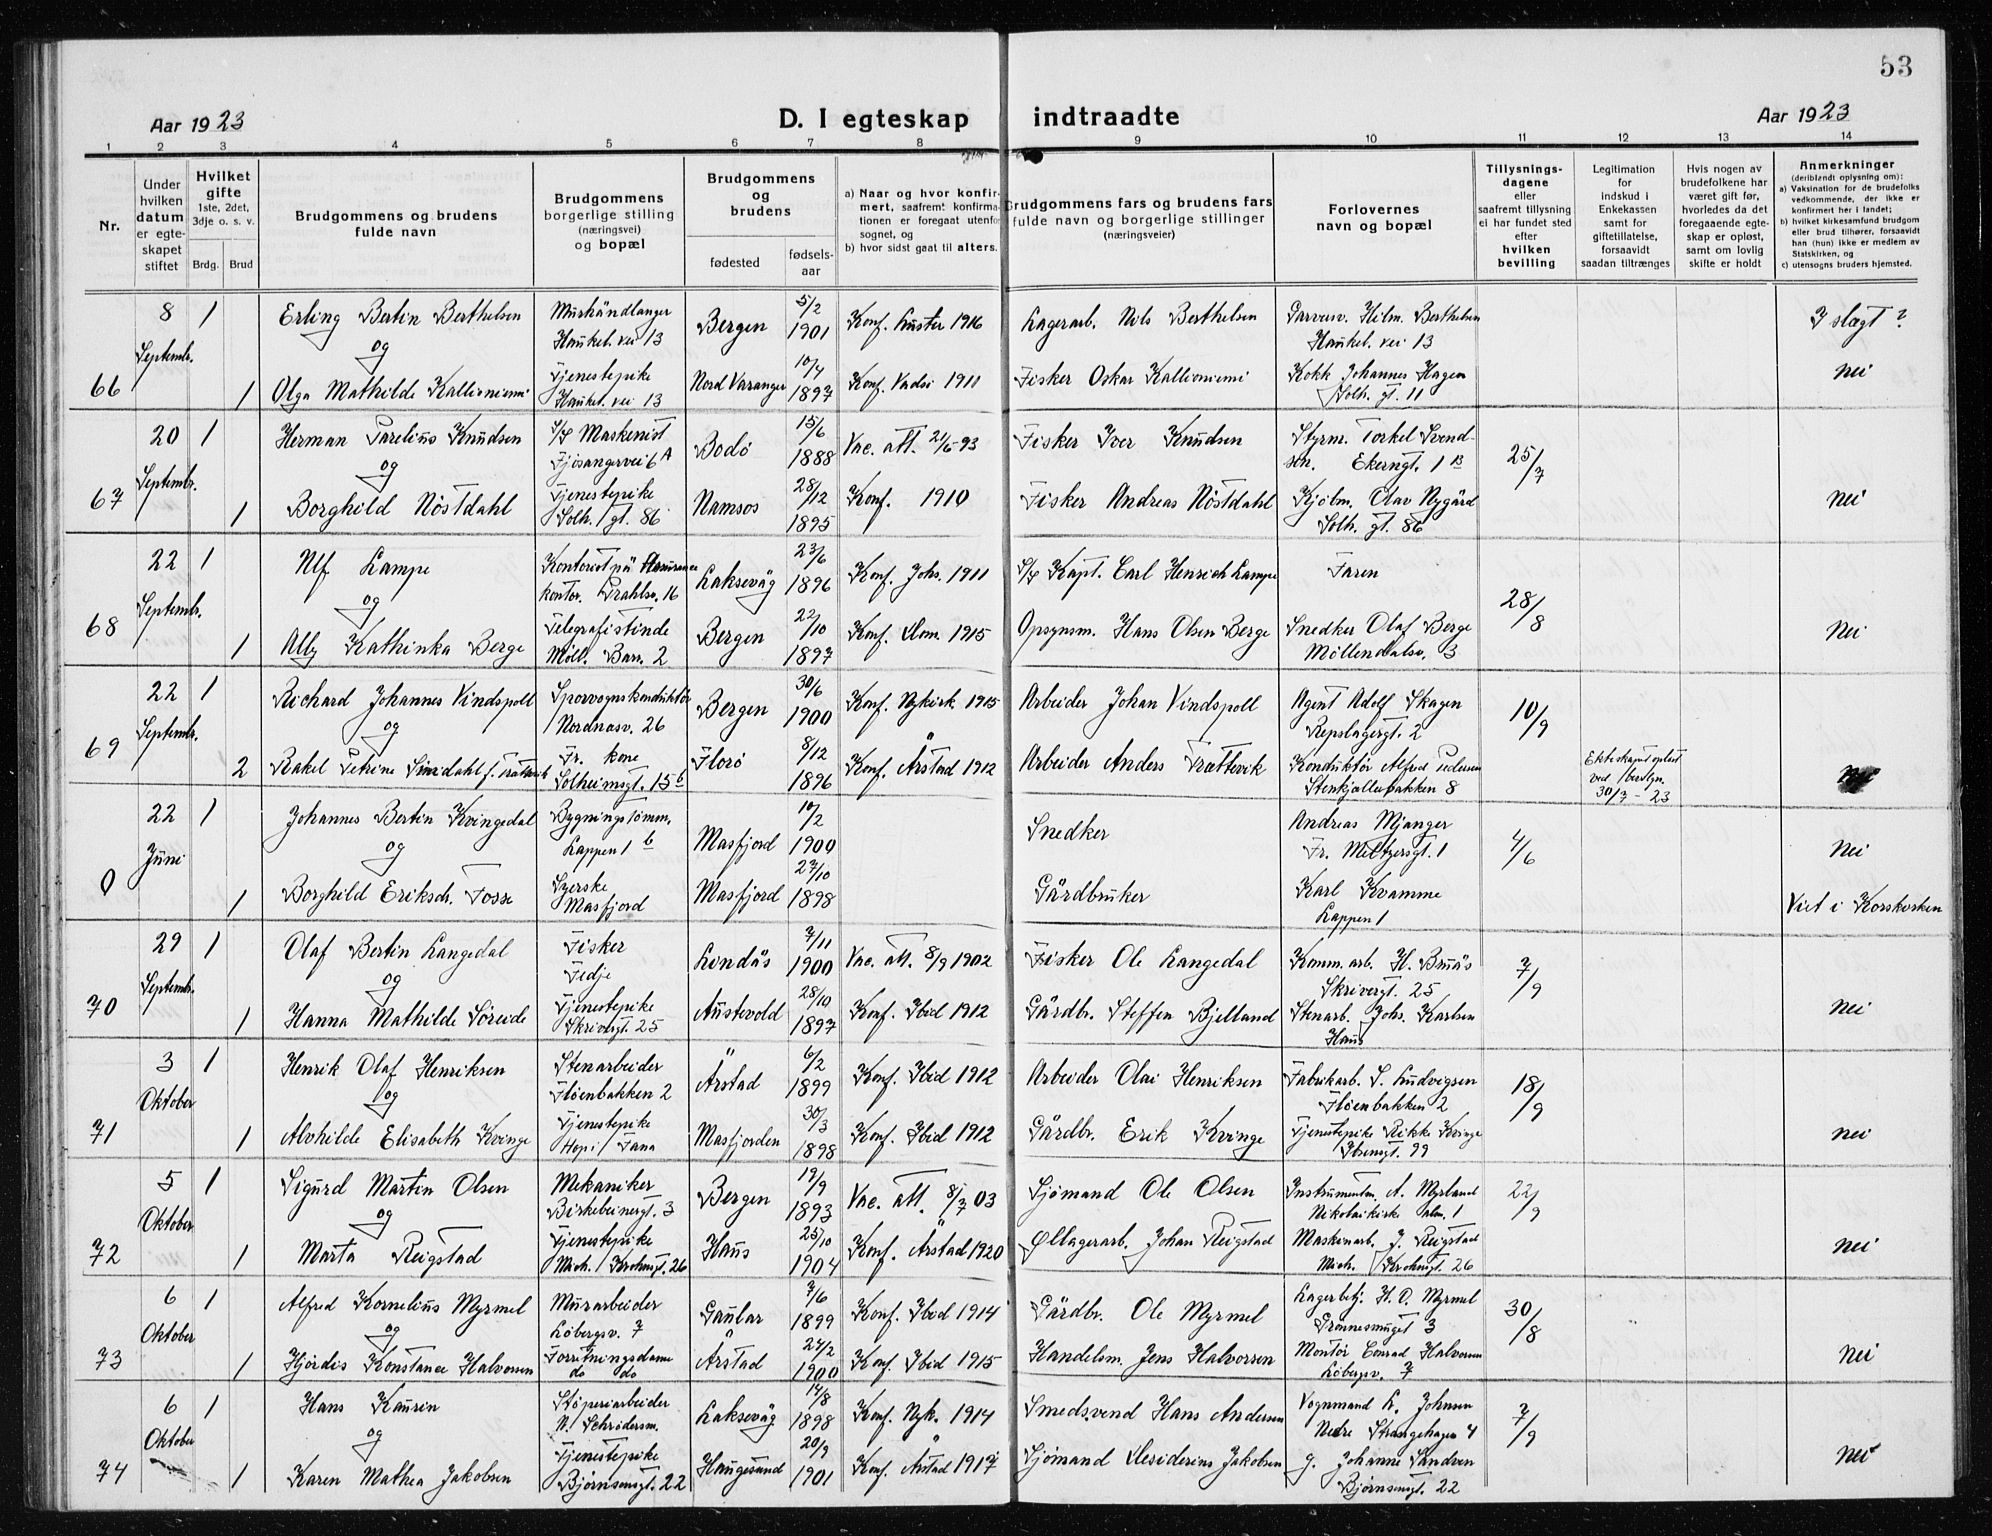 53
Aar 1923
D. I egteskap indtraadte
Aar 1923
1 2 3 4 5 6 7 8 9 10 11 12 13 14
Nr.
Under
hvilken
datum
er egte-
skapet
stiftet
Hvilket
gifte
1ste, 2det,
3dje o. s. v.
Brdg. Brud
Brudgommens og brudens
fulde navn
Brudgommens
borgerlige stilling
(næringsvei)
og bopæl
Brudgommens
og
brudens
fødested
fødsels-
aar
a) Naar og hvor konfir-
mert, saafremt konfirma-
tionen er foregaat utenfor
sognet, og
b) hvor sidst gaat til alters.
Brudgommens fars og brudens fars
fulde navn og borgerlige stillinger
(næringsveier)
Forlovernes
navn og bopæl
Tillysnings-
dagene
eller
saafremt tillysning
ei har fundet sted
efter
hvilken
bevilling
Legitimation
for
indskud i
Enkekassen
samt for
giftetillatelse,
forsaavidt
saadan tiltrænges
Hvis nogen av
brudefolkene har
været gift før,
hvorledes da det
foregaaende egte-
skap er opløst,
samt om lovlig
skifte er holdt
Anmerkninger
(deriblandt oplysning om):
a) Vaksination for de brudefolks
vedkommende, der ikke er
konfirmert her i landet;
b) hvilket kirkesamfund brudgom
eller brud tilhører, forsaavidt
han (hun) ikke er medlem av
Statskirken, og
c) utensogns bruders hjemsted.
66
8
Septembr.
1
Erling Bertin Berthelsen
og
Murhåndlanger
Haukel. vei 13
Bergen
5/2
1901
Konf. Luster 1916
Lagerarb. Nils Berthelsen
Garversv. Hilm. Berthelsen
Haukel. vei 13
I slægt ?
1
Olga Mathilde Kallioniemi
Tjenestepike
Haukel. vei 13
Nord Varanger
10/4
1897
Konf. Vadsö 1911
Fisker Oskar Kallioniemi
Kokk Johannes Hagen
Solh. gt. 11
nei
67
20
Septembr.
1
Herman Parelius Knudsen
og
S/S Maskenist
Fjösangervei 6 A
Bodö
15/6
1888
Vac. att. 21/6-93
Fisker Iver Knudsen
Styrm. Torkel Svend-
sen. Ekerngt. 1 B
25/7
1
Borghild Nöstdahl
Tjenestepike
Solh. gt. 86
Namsos
28/12
1895
Konf. 1910
Fisker Andreas Nöstdahl
Kjöbm. Olav Nygård
Solh. gt. 86
nei
68
22
Septembr.
1
Alf Lampe
og
Kontorist på
kontor. 16
Laksevåg
23/6
1896
Konf. Johs. 1911
S/S Kapt. Carl Henrich Lampe
Faren
28/8
1
Ally Kathinka Berge
Telegrafistinde
Möll. Bars. 2
Bergen
22/10
1897
Konf. Dom. 1915
Opsynsm. Hans Olsen Berge
Snedker Olaf Berge
Möllendalsv. 3
Nei
69
22
Septembr.
1
Richard Johannes Vindspoll
og
Sporvognskonduktör
Nordnæsv. 26
Bergen
30/6
1900
Konf. Nykirk. 1915
Arbeider Johan Vindspoll
Agent Adolf Skagen
Repslagergt. 2
10/9
2
Rakel Petrine Sundahl f. Trættevik
Fr. kone
Solheimsgt. 15 b
Florö
8/12
1896
Konf. Årstad 1912
Arbeider Anders Trættevik
Konduktör Alfred Pedersen
Stenkjellerbakken 8
Ekteskapet oplöst
ved bevlgn.
30/7 - 23
nei
0
22
Juni
1
Johannes Bertin Kvingedal
og
Bygningstömm.
Lappen 1 b
Masfjord
10/2
1900
Snedker
Andreas Mjanger
Fr. Meltzersgt. 1
4/6
nei
1
Borghild Eriksdr. Fosse
Syerske
Masfjord
Masfjord
27/10
1898
Gårdbruker
Karl Kvamme
Lappen 1
Viet i Korskirken
70
29
Septembr.
1
Olaf Bertin Langedal
og
Fisker
Fedje
Lindås
7/11
1900
Vac. att. 8/9 1902
Fisker Ole Langedal
Komm. arb. H. Bruås
Skrivergt. 25
7/9
1
Hanna Mathilde Söreide
Tjenestepike
Skrivergt. 25
Austevold
28/10
1897
Konf. Ibid 1912
Gårdbr. Steffen Bjelland
Stenarb. Johs. Karlsen
Haus
nei
71
3
Oktober
1
Henrik Olaf Henriksen
og
Stenarbeider
Flöenbakken 2
Årstad
6/2
1899
Konf. Ibid 1912
Arbeider Olai Henriksen
Fabrikarb. S. Ludvigsen
Flöenbakken 2
18/9
1
Alvhilde Elisabeth Kvinge
Tjenestepike
Hop i Fana
Masfjorden
30/3
1898
Konf. Ibid 1912
Gårdbr. Erik Kvinge
Tjenestepike Rikke Kvinge
Ibsensgt. 99
nei
72
5
Oktober
1
Sigurd Martin Olsen
og
Mekaniker
Birkebeinergt. 3
Bergen
19/9
1893
Vac. att. 8/7 03
Sjömand Ole Olsen
Instrumentm. A. Myrland
Nikolaikirke alm. 1
22/9
1
Marta Reigstad
Tjenestepike
Mich. Krohnsgt. 26
Haus
25/10
1904
Konf. Årstad 1920
Øllagerarb. Johan Reigstad
Maskinarb. J. Reigstad
Mich. Krohnsgt. 26
nei
73
6
Oktober
1
Alfred Kornelius Myrmel
og
Murarbeider
Löbergsv. 7
Gaular
7/6
1899
Konf. Ibid 1914
Gårdbr. Ole Myrmel
Lagerbetj. H. O. Myrmel
Grönnesmuget 3
30/8
1
Hjördis Konstance Halvorsen
Forretningsdame
do do
Årstad
24/2
1900
Konf. Ibid 1915
Handelsm. Jens Halvorsen
Montör Conrad Halvorsen
Löbergsv. 7
nei
74
6
Oktober
1
Hans Kaurin
og
Stöperiarbeider
N. Schrödersm.
Laksevåg
14/8
1898
Konf. Nyk. 1914
Smedsvend Hans Andersen
Vognmand L. Johnsen
Nedre Strangehagen 4
7/9
1
Karen Mathea Jakobsen
Tjenestepike
Björnsonsgt. 22
Haugesund
20/9
1901
Konf. Årstad 1917
Sjömand Desiderius Jakobsen
g. Johanne Sandven
Björnsonsgt. 22
nei